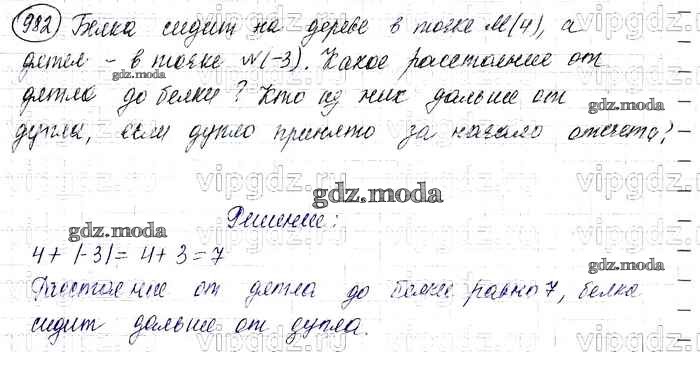 982 Белка сидит на дереве в точке M(4), а
дятел - в точке N(-3). Какое расстояние от
gdz.moda
дятла до белки? Кто из них дальше от
gdz.moda
дупла, если дупло принято за начало отсчета?
vipgdz.ru
gdz.moda
Решение:
gdz.moda
4 + |-3| = 4 + 3 = 7
gdz.moda
Расстояние от дятла до белки равно 7, белка
сидит дальше от дупла.